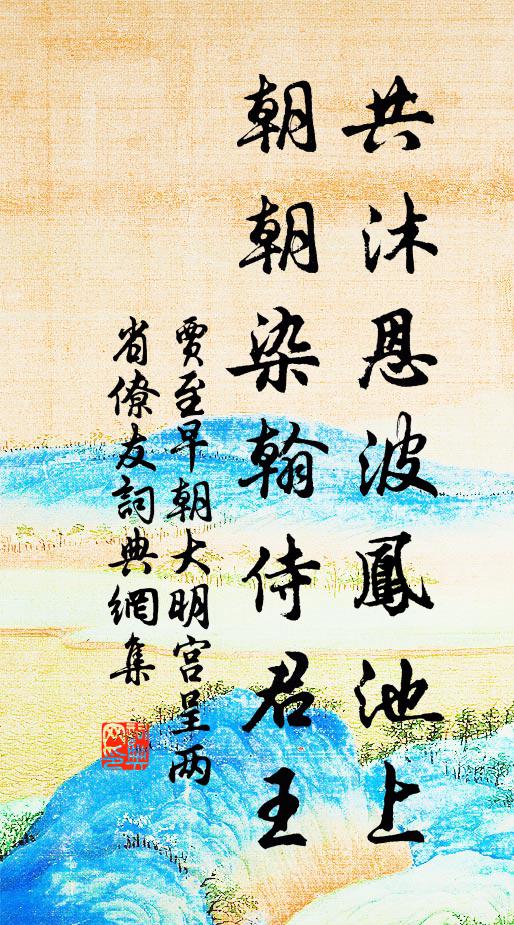 共沐恩波鳳池上
朝朝染翰侍君王
賈至早朝大明宫呈两
省僚友詞典網集